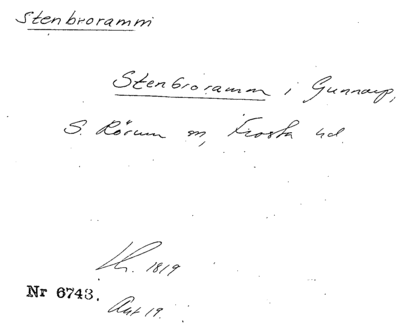 Stenbroramm
Stenbroramm i Gunnarp,
S. Rörum sn, Frosta hd.
Lh. 1819
Nr 6743.
Avt 19.